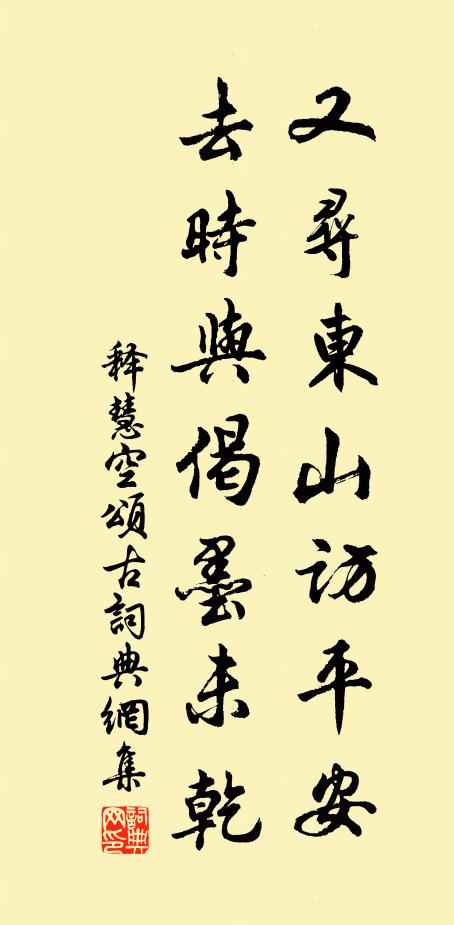 又尋東山訪平安
去時與偈墨未乾
释慧空頌古詞典網集
詞典網印